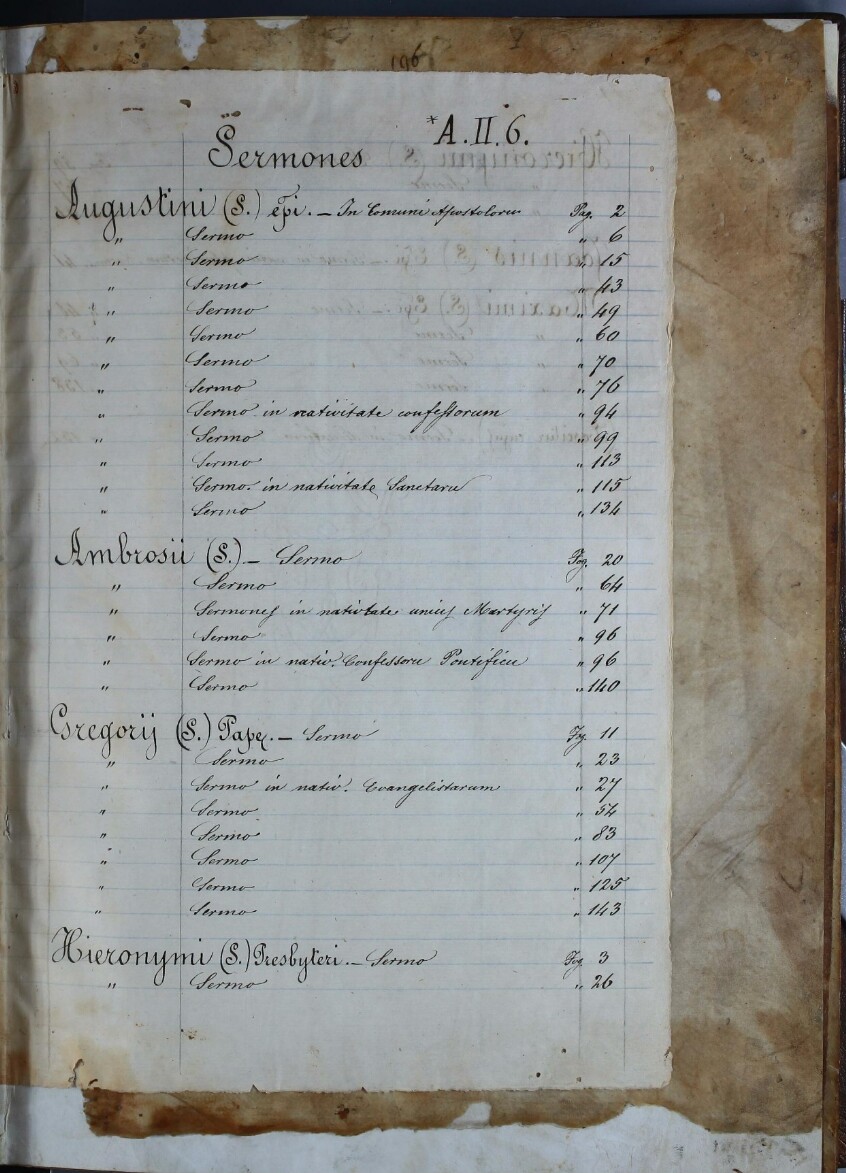 196
*A.II.6.
Sermones
Augustini (S.) epi. – In Comuni Apostoloru Pag. 2
" Sermo " 6
" Sermo " 15
" Sermo " 43
" Sermo " 49
" Sermo " 60
" Sermo " 70
" Sermo " 76
" Sermo in nativitate confessorum " 94
" Sermo " 99
" Sermo " 113
" Sermo. in nativitate Sanctaru " 115
" Sermo " 134
Ambrosii (S.) – Sermo Fog. 20
" Sermo " 64
" Sermones in nativtate unius Martyris " 71
" Sermo " 96
" Sermo in nativ. Confessoru Pontificu " 96
" Sermo " 140
Gregorij (S.) Papę. – Sermo Fg. 11
" Sermo " 23
" Sermo in nativ. Evangelistarum " 27
" Sermo " 54
" Sermo " 83
" Sermo " 107
" Sermo " 125
" Sermo " 143
Hieronymi (S.) Presbyteri. – Sermo Fog 3
" Sermo " 26